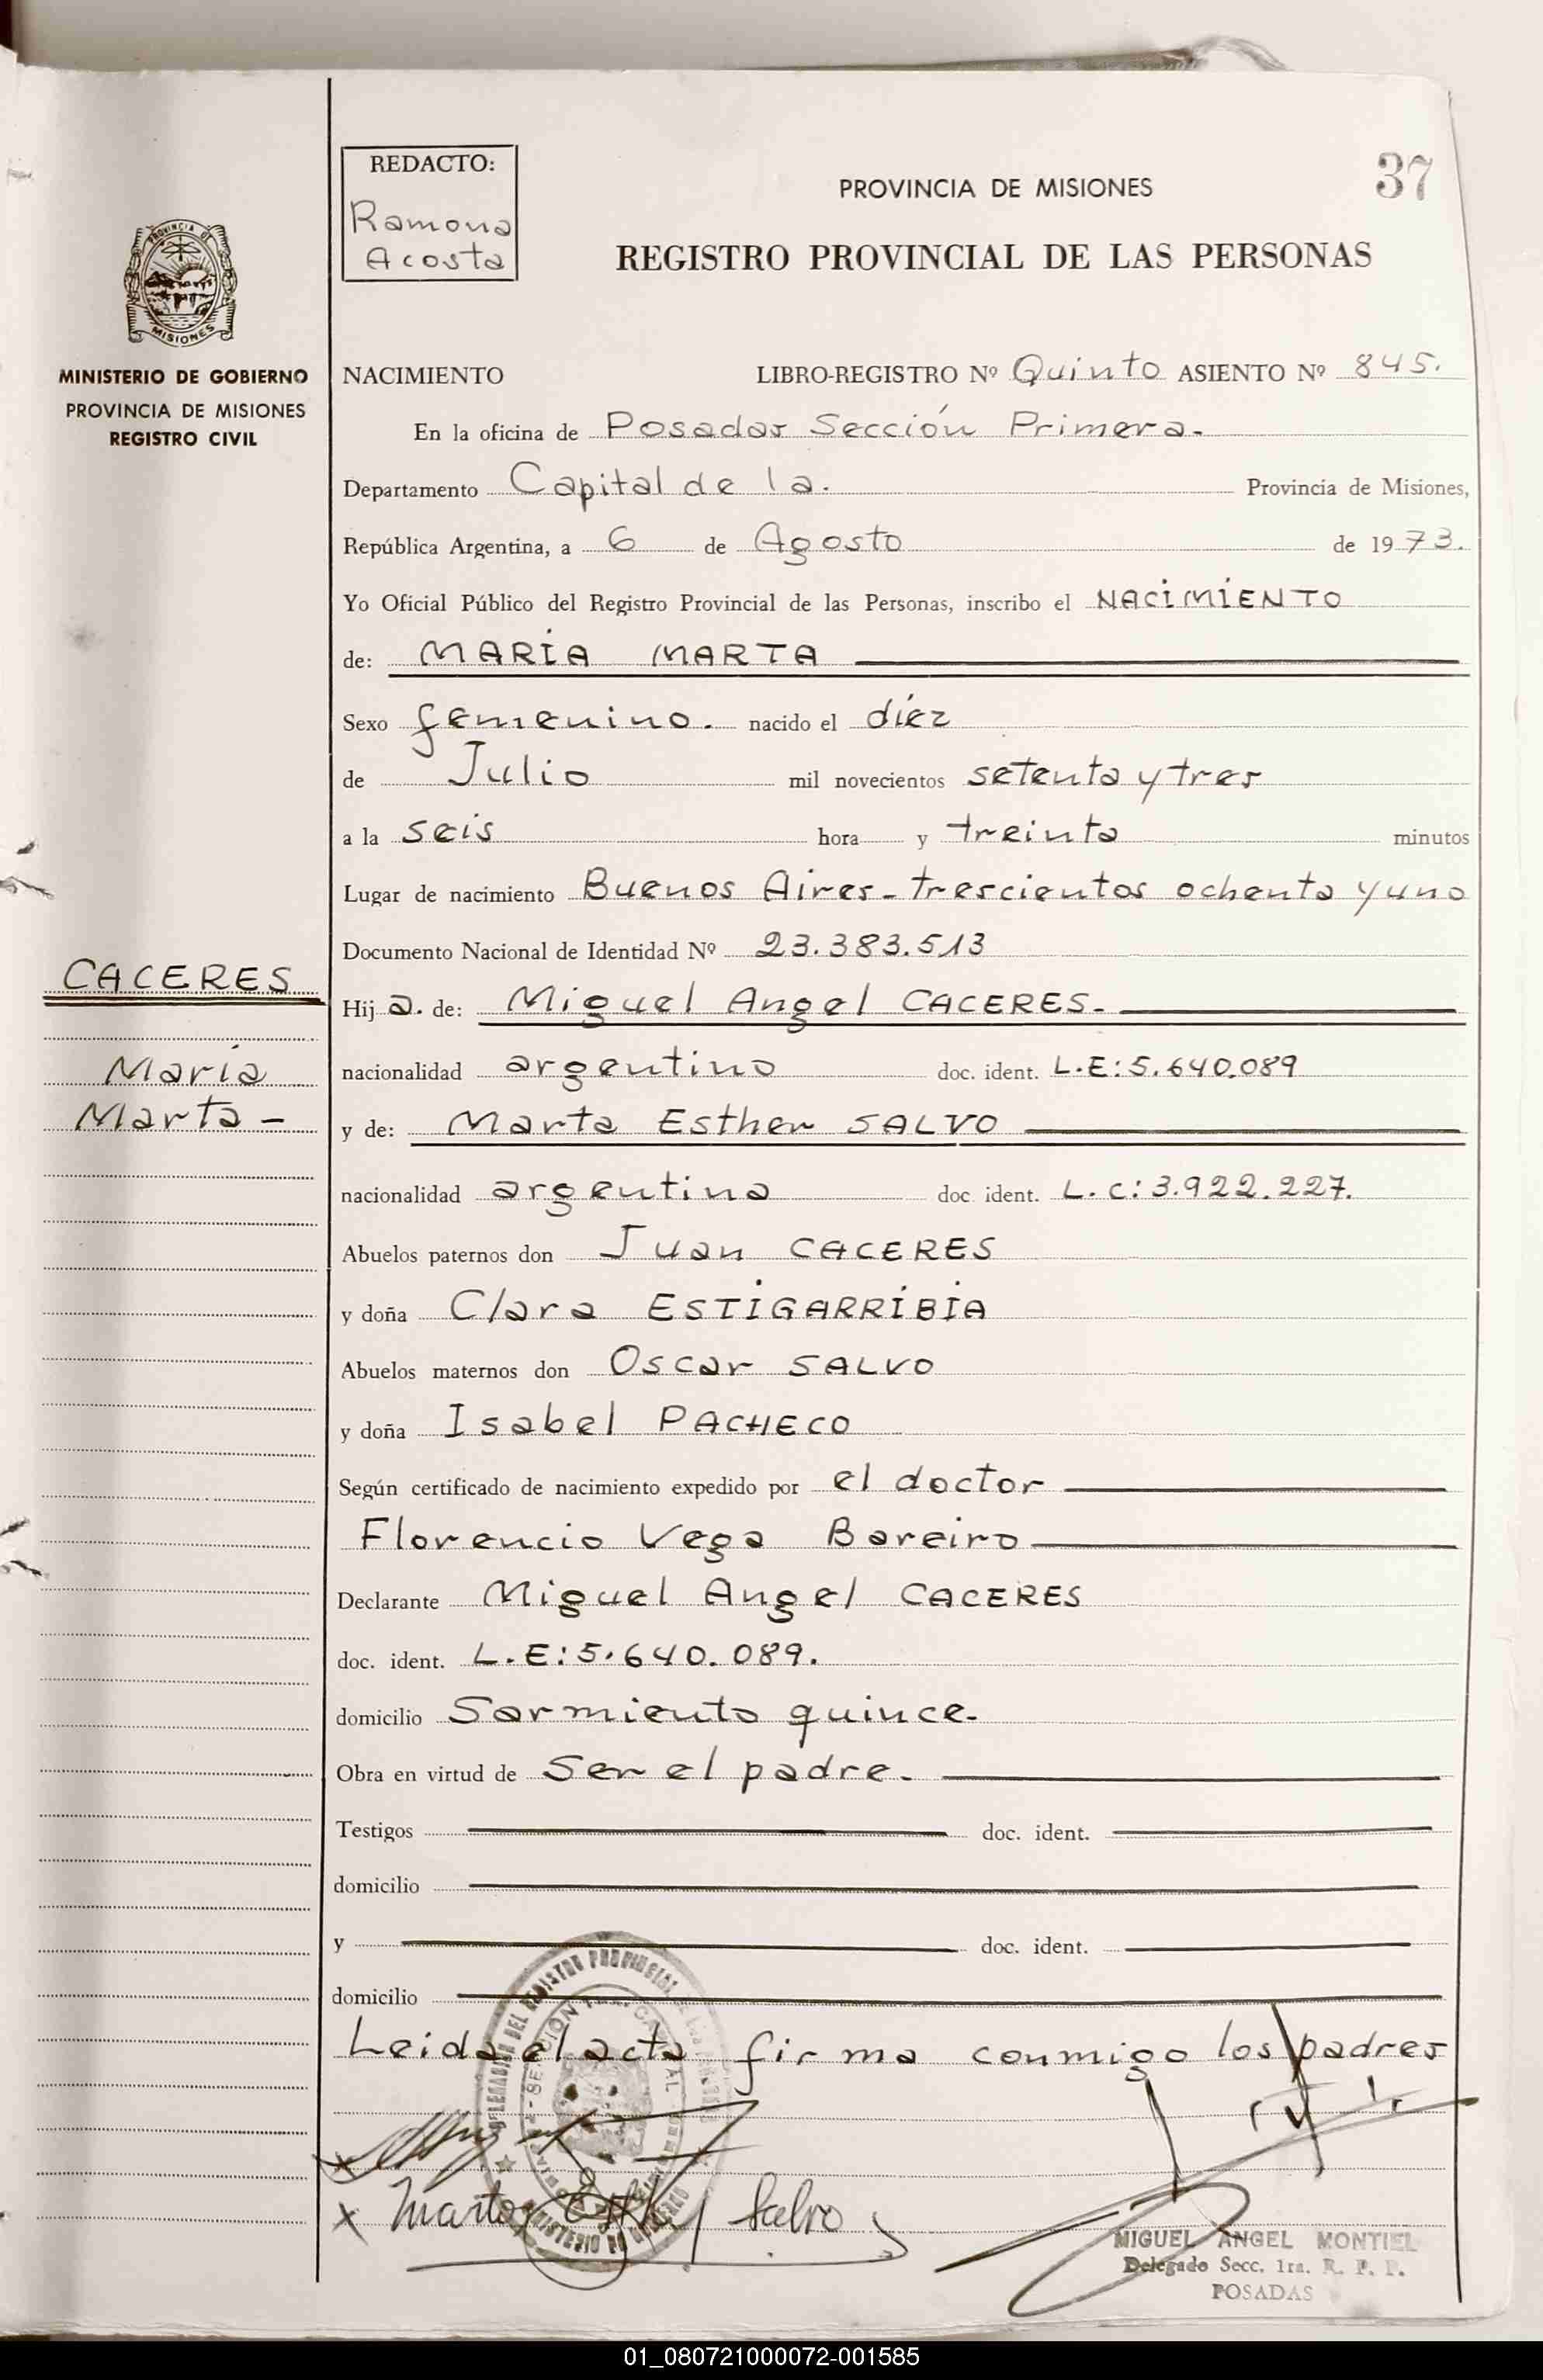 REDACTO:
Ramona
Acosta
37
PROVINCIA DE MISIONES
REGISTRO PROVINCIAL DE LAS PERSONAS
PROVINCIA DE
MISIONES
MINISTERIO DE GOBIERNO
PROVINCIA DE MISIONES
REGISTRO CIVIL
NACIMIENTO LIBRO-REGISTRO Nº Quinto ASIENTO Nº 845.
En la oficina de Posadas Sección Primera.
Departamento Capital de la. Provincia de Misiones,
República Argentina, a 6 de Agosto de 1973.
Yo Oficial Público del Registro Provincial de las Personas, inscribo el NACIMIENTO
de: MARIA MARTA
Sexo femenino. nacido el diéz
de Julio mil novecientos setenta y tres
a la seis hora y treinta minutos
Lugar de nacimiento Buenos Aires - trescientos ochenta y uno
Documento Nacional de Identidad Nº 23.383.513
CACERES
María
Marta -
Hij a. de: Miguel Angel CACERES.
nacionalidad argentino doc. ident. L.E: 5.640.089
y de: Marta Esther SALVO
nacionalidad argentina doc. ident. L.C: 3.922.227.
Abuelos paternos don Juan CACERES
y doña Clara ESTIGARRIBIA
Abuelos maternos don Oscar SALVO
y doña Isabel PACHECO
Según certificado de nacimiento expedido por el doctor
Florencio Vega Bareiro
Declarante Miguel Angel CACERES
doc. ident. L.E: 5.640.089.
domicilio Sarmiento quince.
Obra en virtud de Ser el padre.
Testigos doc. ident.
domicilio
y doc. ident.
domicilio
Leida el acta firma conmigo los padres
x
x Marta Salvo
MIGUEL ANGEL MONTIEL
Delegado Secc. 1ra. R. P. P.
POSADAS
01_080721000072-001585